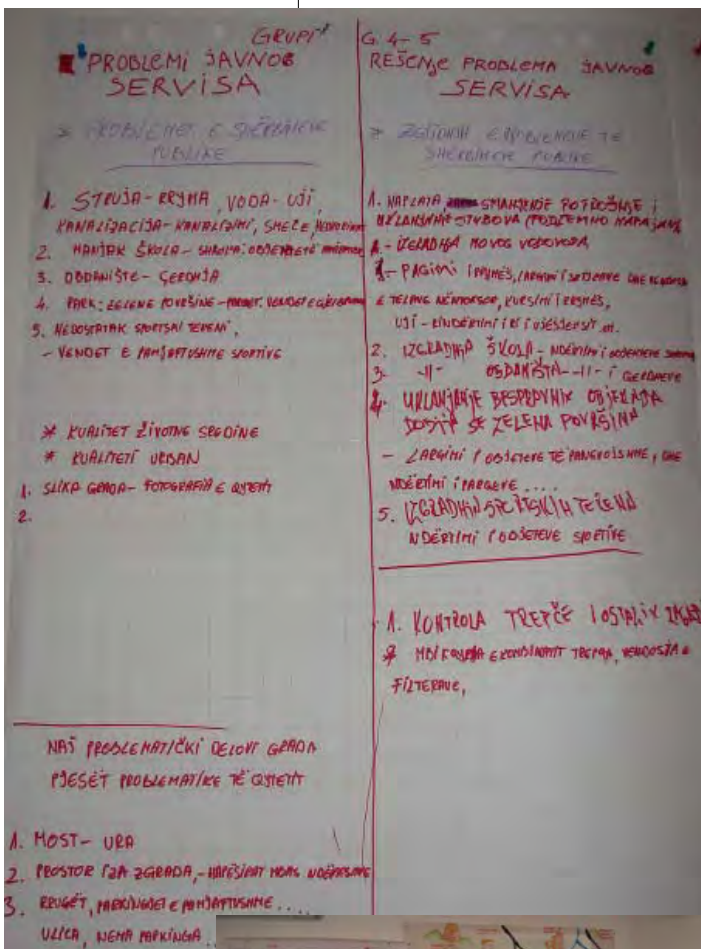 GRUPI
PROBLEMI JAVNOG
SERVISA
* PROBLEMET E SHËRBIMEVE
PUBLIKE
1. STRUJA - RRYMA, VODA - UJI,
KANALIZACIJA - KANALIZIMI, SMEĆE,
2. MANJAK ŠKOLA -
3. OBDANIŠTE - ÇERDHJA
4. PARK: ZELENE POVRŠINE -
5. NEDOSTATAK SPORTSKI TERENI,
- VENDET E PAMJAFTUSHME SPORTIVE
* KUALITET ŽIVOTNE SREDINE
* KUALITETI URBAN
1. SLIKA GRADA - FOTOGRAFIA E QYTETIT
2.
NAJ PROBLEMATIČKI DELOVI GRADA
PJESËT PROBLEMATIKE TË QYTETIT
1. MOST - URA
2. PROSTOR IZA ZGRADA, - HAPËSIRAT
3. RRUGËT, PARKINGJET E PAMJAFTUSHME....
ULICA, NEMA PARKINGA...
G. 4-5
REŠENJE PROBLEMA JAVNOG
SERVISA
* ZGJIDHJA E PROBLEMEVE TË
SHËRBIMEVE PUBLIKE
1. NAPLATA, SMANJENJE POTROŠNJE I
UKLANJANJE STUBOVA (PODZEMNO NAPAJANJE
1. - IZGRADNJA NOVOG VODOVODA
1 - PAGIMI I RRYMËS, LARGIMI I
E TELAVE NËNTOKSOR, KURSIMI I RRYMËS,
UJI - RINDËRTIMI I RI I UJËSJELLSIT
2. IZGRADNJA ŠKOLA - NDËRTIMI I OBJEKTEVE
3. -11- OBDANIŠTA -11- I ÇERDHEVE
4. UKLANJANJE BESPRAVNIH OBJEKATA
ZELENA POVRŠINA
- LARGIMI I OBJEKTEVE TË PANEVOJSHME, DHE
NDËRTIMI I PARQEVE....
5. IZGRADNJA SPORTSKIH TERENA
NDËRTIMI I OBJEKTEVE SPORTIVE
1. KONTROLA TREPČE I OSTALIH
* TREPÇA, VENDOSJA E
FILTERAVE,